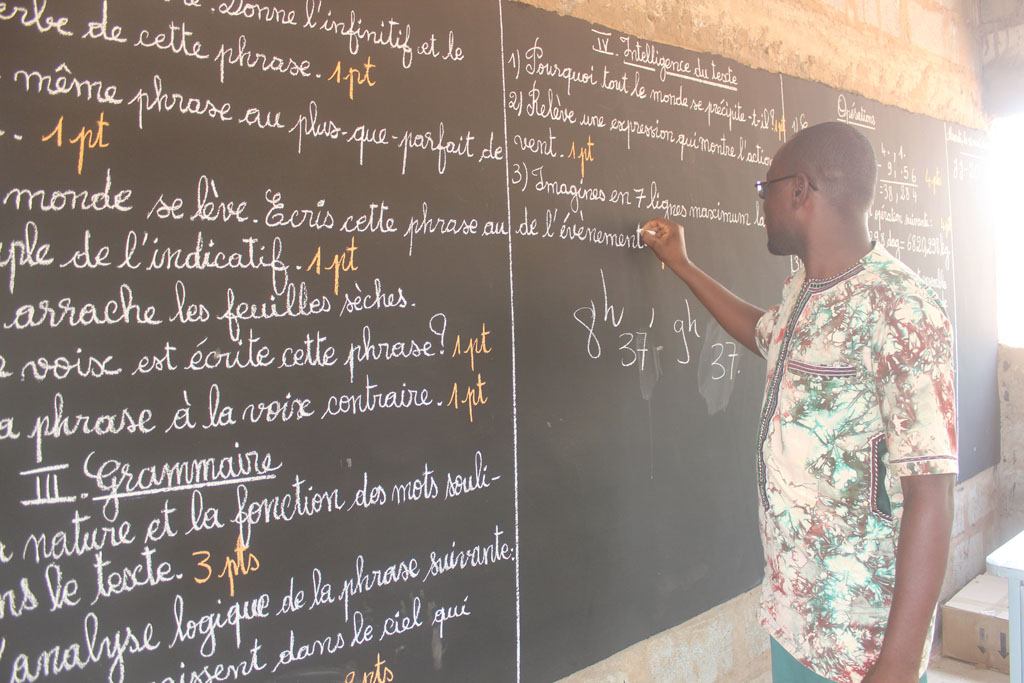 Donne l'infinitif et le
verbe de cette phrase. 1pt
même phrase au plus-que-parfait de
1pt
monde se lève. Ecris cette phrase au
ple de l'indicatif. 1pt
arrache les feuilles sèches.
voix est écrite cette phrase? 1pt
a phrase à la voix contraire. 1pt
III. Grammaire
nature et la fonction des mots souli-
ns le texte. 3pts
l'analyse logique de la phrase suivante:
issent dans le ciel qui
pts
IV. Intelligence du texte
1) Pourquoi tout le monde se précipite-t-il? 1pt
2) Relève une expression qui montre l'action
vent. 1pt
3) Imagines en 7 lignes maximum la
de l'évènement
8h37' - 9h37'
Opérations
4pts
opération suivante: